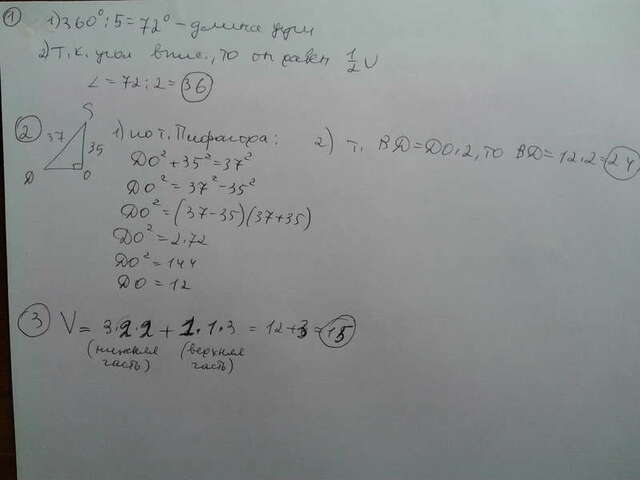 ① 1) 360° : 5 = 72° – длина дуги
2) Т.к. угол впис., то он равен 1/2 ∪
∠ = 72 : 2 = 36
② S
37
35
D O
1) по т. Пифагора:
DO² + 35² = 37²
DO² = 37² - 35²
DO² = (37-35)(37+35)
DO² = 2·72
DO² = 144
DO = 12
2) т. BD = DO·2, то BD = 12·2 = 24
③ V = 3·2·2 + 1·1·3 = 12 + 3 = 15
(нижняя часть) (верхняя часть)